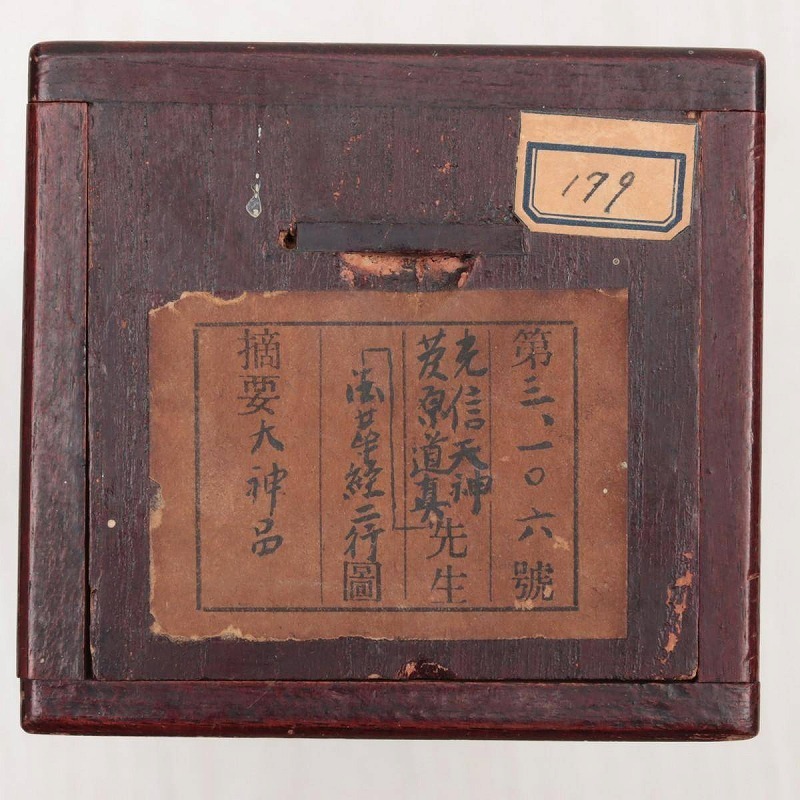 179
第三、一〇六號
光信天神
菅原道真先生
法華経二行圖
摘要大神品